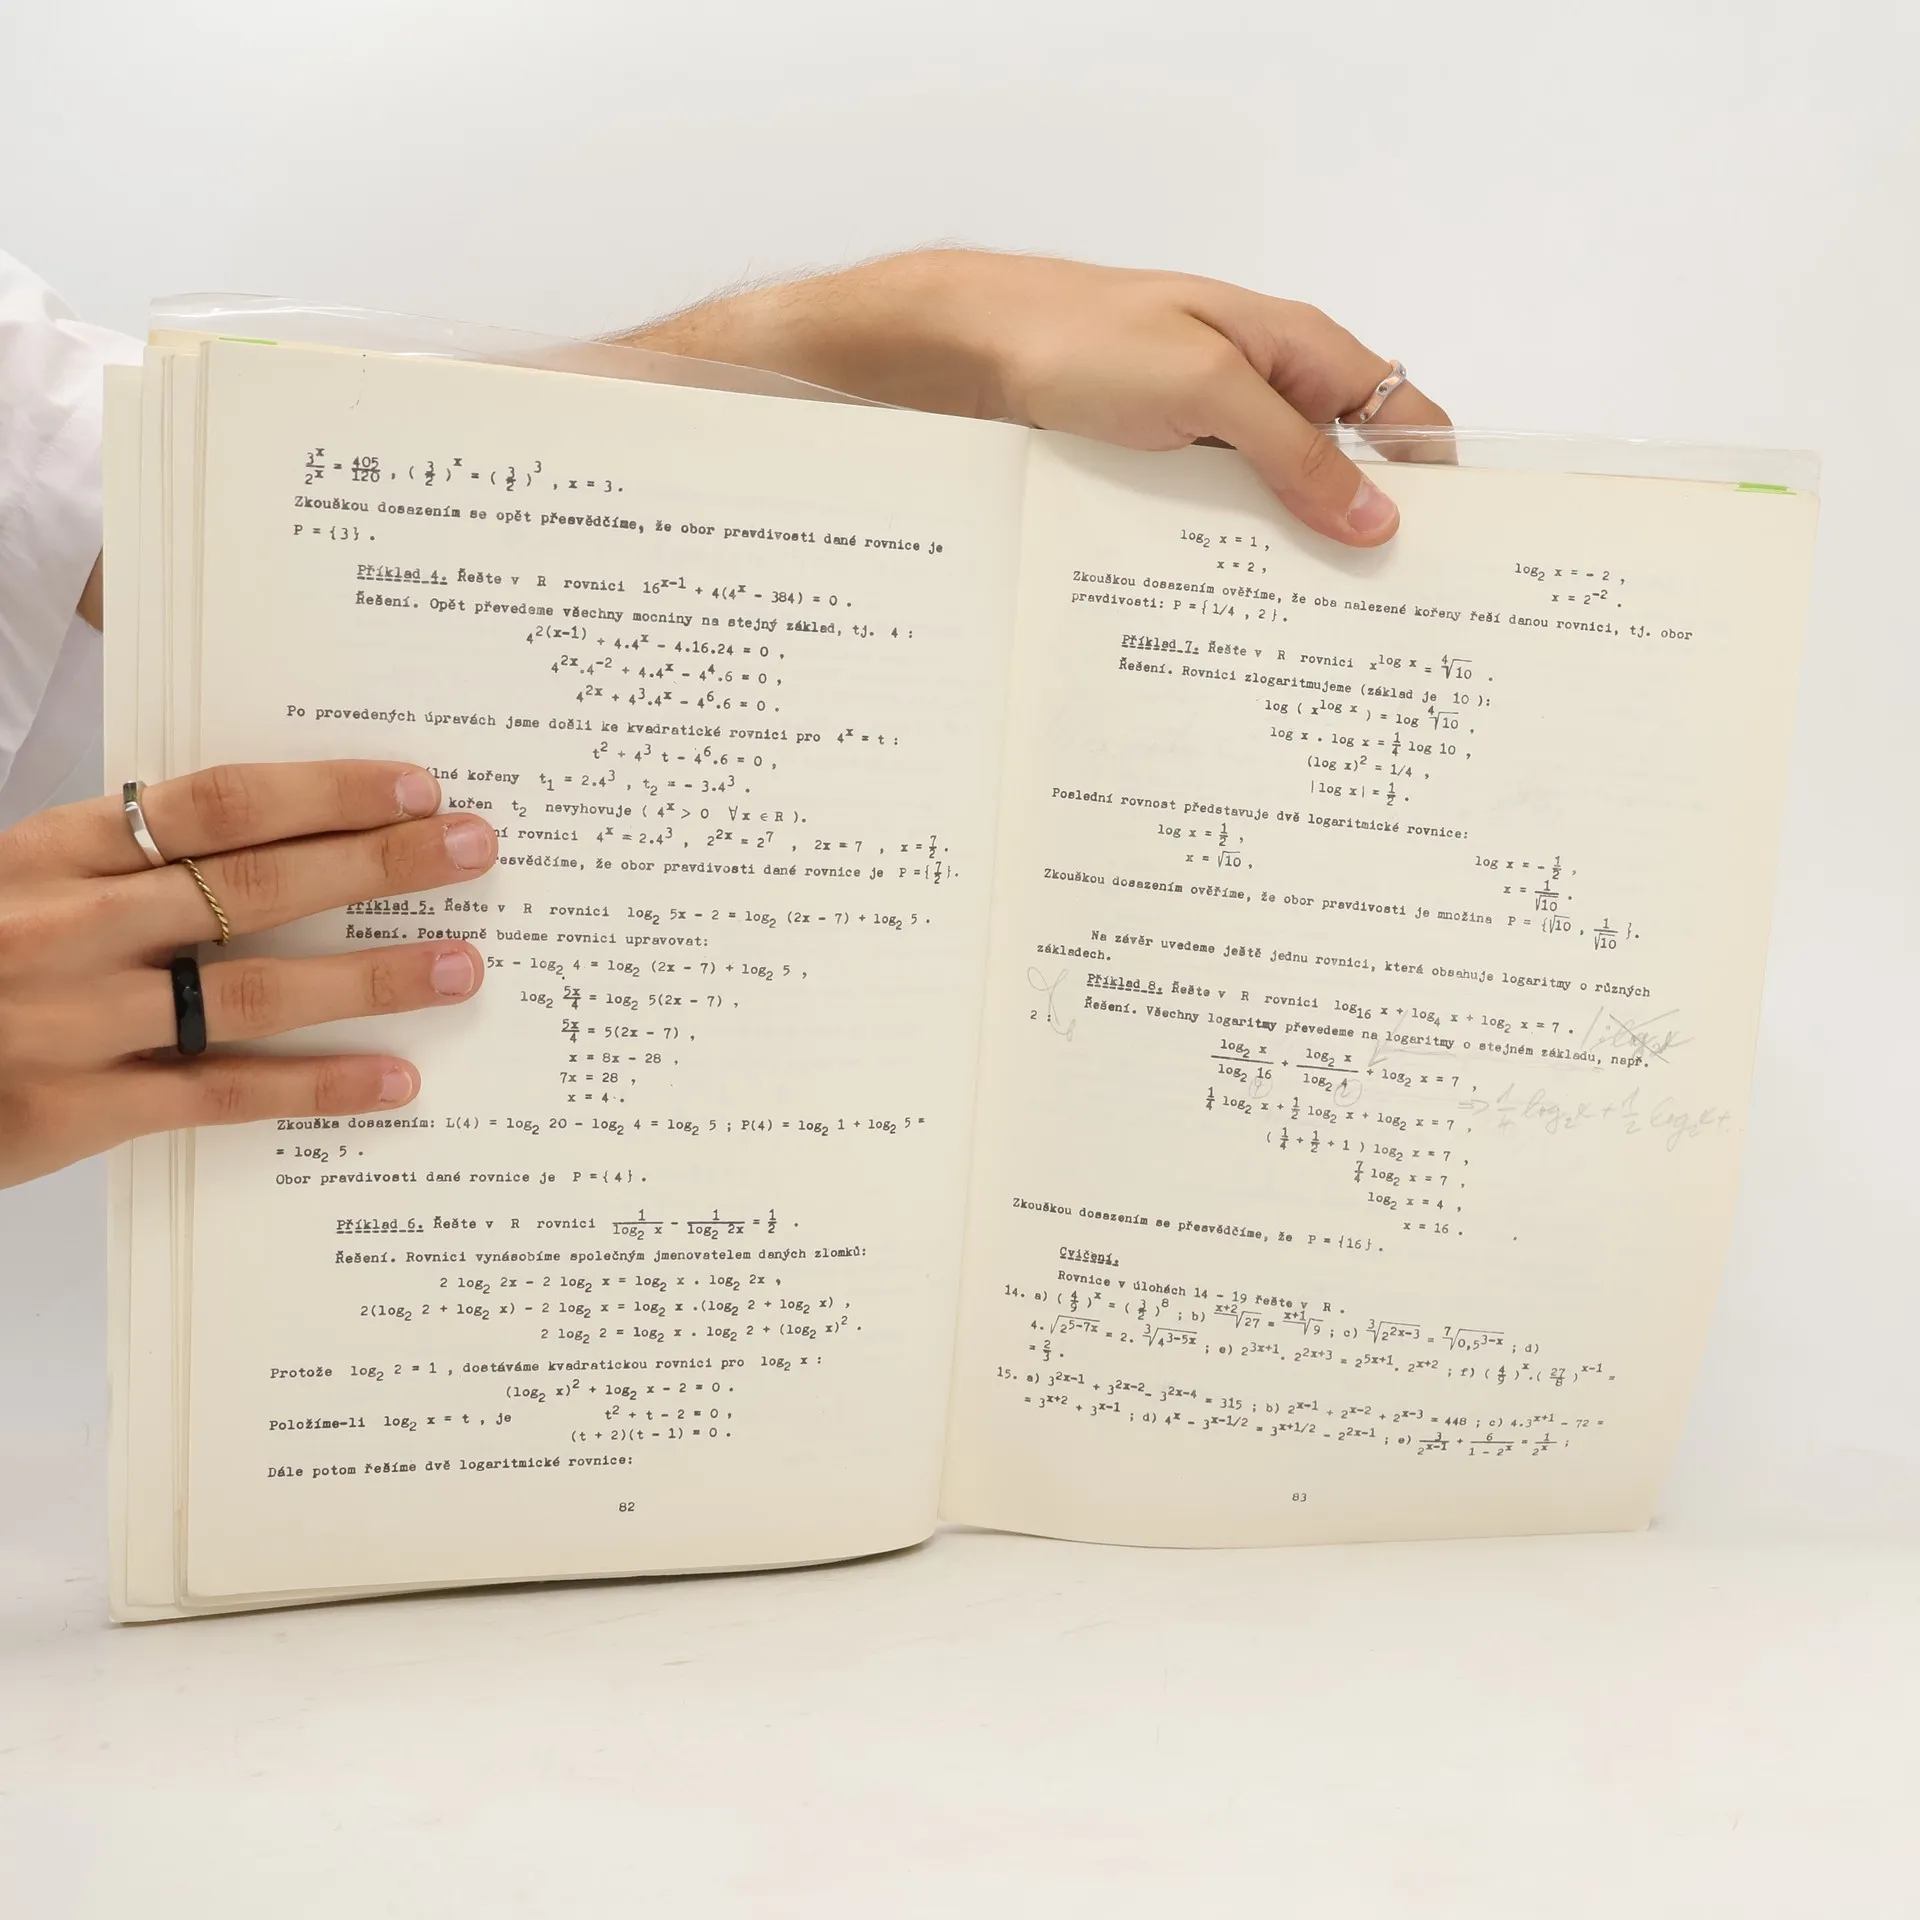 3^x/2^x = 405/120 , ( 3/2 )^x = ( 3/2 )^3 , x = 3 .
Zkouškou dosazením se opět přesvědčíme, že obor pravdivosti dané rovnice je
P = {3} .
Příklad 4. Řešte v R rovnici 16^(x-1) + 4(4^x - 384) = 0 .
Řešení. Opět převedeme všechny mocniny na stejný základ, tj. 4 :
4^2(x-1) + 4.4^x - 4.16.24 = 0 ,
4^2x.4^-2 + 4.4^x - 4^4.6 = 0 ,
4^2x + 4^3.4^x - 4^6.6 = 0 .
Po provedených úpravách jsme došli ke kvadratické rovnici pro 4^x = t :
t^2 + 4^3 t - 4^6.6 = 0 ,
lné kořeny t₁ = 2.4^3 , t₂ = - 3.4^3 .
kořen t₂ nevyhovuje ( 4^x > 0 ∀x ∈ R ).
ní rovnici 4^x = 2.4^3 , 2^2x = 2^7 , 2x = 7 , x = 7/2 .
resvědčíme, že obor pravdivosti dané rovnice je P = {7/2}.
Příklad 5. Řešte v R rovnici log₂ 5x - 2 = log₂ (2x - 7) + log₂ 5 .
Řešení. Postupně budeme rovnici upravovat:
5x - log₂ 4 = log₂ (2x - 7) + log₂ 5 ,
log₂ 5x/4 = log₂ 5(2x - 7) ,
5x/4 = 5(2x - 7) ,
x = 8x - 28 ,
7x = 28 ,
x = 4 .
Zkouška dosazením: L(4) = log₂ 20 - log₂ 4 = log₂ 5 ; P(4) = log₂ 1 + log₂ 5 =
= log₂ 5 .
Obor pravdivosti dané rovnice je P = {4} .
Příklad 6. Řešte v R rovnici 1/log₂ x - 1/log₂ 2x = 1/2 .
Řešení. Rovnici vynásobíme společným jmenovatelem daných zlomků:
2 log₂ 2x - 2 log₂ x = log₂ x . log₂ 2x ,
2(log₂ 2 + log₂ x) - 2 log₂ x = log₂ x .(log₂ 2 + log₂ x) ,
2 log₂ 2 = log₂ x . log₂ 2 + (log₂ x)^2 .
Protože log₂ 2 = 1 , dostáváme kvadratickou rovnici pro log₂ x :
(log₂ x)^2 + log₂ x - 2 = 0 .
Položíme-li log₂ x = t , je t^2 + t - 2 = 0 ,
(t + 2)(t - 1) = 0 .
Dále potom řešíme dvě logaritmické rovnice:
82
log₂ x = 1 , log₂ x = - 2 ,
x = 2 , x = 2^-2 .
Zkouškou dosazením ověříme, že oba nalezené kořeny řeší danou rovnici, tj. obor
pravdivosti: P = { 1/4 , 2 } .
Příklad 7. Řešte v R rovnici x^(log x) = ⁴√10 .
Řešení. Rovnici zlogaritmujeme (základ je 10 ):
log ( x^(log x) ) = log ⁴√10 ,
log x . log x = 1/4 log 10 ,
(log x)^2 = 1/4 ,
|log x| = 1/2 .
Poslední rovnost představuje dvě logaritmické rovnice:
log x = 1/2 , log x = - 1/2 ,
x = √10 , x = 1/√10 .
Zkouškou dosazením ověříme, že obor pravdivosti je množina P = {√10 , 1/√10 }.
Na závěr uvedeme ještě jednu rovnici, která obsahuje logaritmy o různých
základech.
Příklad 8. Řešte v R rovnici log₁₆ x + log₄ x + log₂ x = 7 .
Řešení. Všechny logaritmy převedeme na logaritmy o stejném základu, např.
2 :
log₂ x/log₂ 16 + log₂ x/log₂ 4 + log₂ x = 7 ,
4 2
1/4 log₂ x + 1/2 log₂ x + log₂ x = 7 , ⇒ 1/4 log₂x + 1/2 log₂x + ..
( 1/4 + 1/2 + 1 ) log₂ x = 7 ,
7/4 log₂ x = 7 ,
log₂ x = 4 ,
x = 16 .
Zkouškou dosazením se přesvědčíme, že P = {16} .
Cvičení.
Rovnice v úlohách 14 - 19 řešte v R .
14. a) ( 4/9 )^x = ( 3/2 )^8 ; b) ^(x+2)√27 = ^(x+1)√9 ; c) ³√2^(2x-3) = ⁷√0,5^(3-x) ; d)
4.√2^(5-7x) = 2. ³√4^(3-5x) ; e) 2^(3x+1). 2^(2x+3) = 2^(5x+1). 2^(x+2) ; f) ( 4/9 )^x.( 27/8 )^(x-1) =
= 2/3 .
15. a) 3^(2x-1) + 3^(2x-2) - 3^(2x-4) = 315 ; b) 2^(x-1) + 2^(x-2) + 2^(x-3) = 448 ; c) 4.3^(x+1) - 72 =
= 3^(x+2) + 3^(x-1) ; d) 4^x - 3^(x-1/2) = 3^(x+1/2) - 2^(2x-1) ; e) 3/2^(x-1) + 6/(1 - 2^x) = 1/2^x ;
83